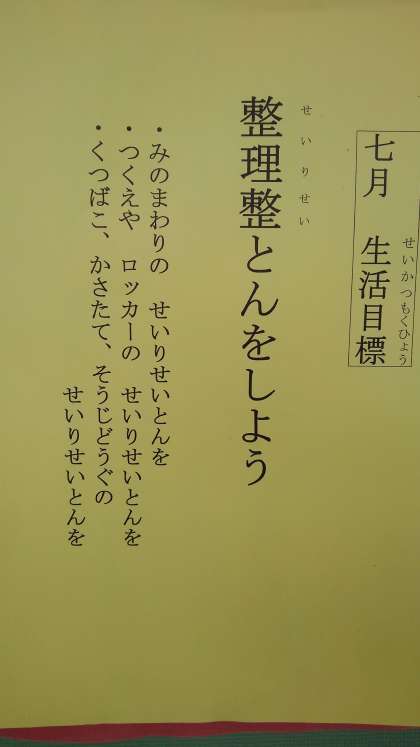 七月　生活目標
せいかつもくひょう
整理整とんをしよう
せいりせい
・みのまわりの　せいりせいとんを
・つくえや　ロッカーの　せいりせいとんを
・くつばこ、かさたて、そうじどうぐの
せいりせいとんを